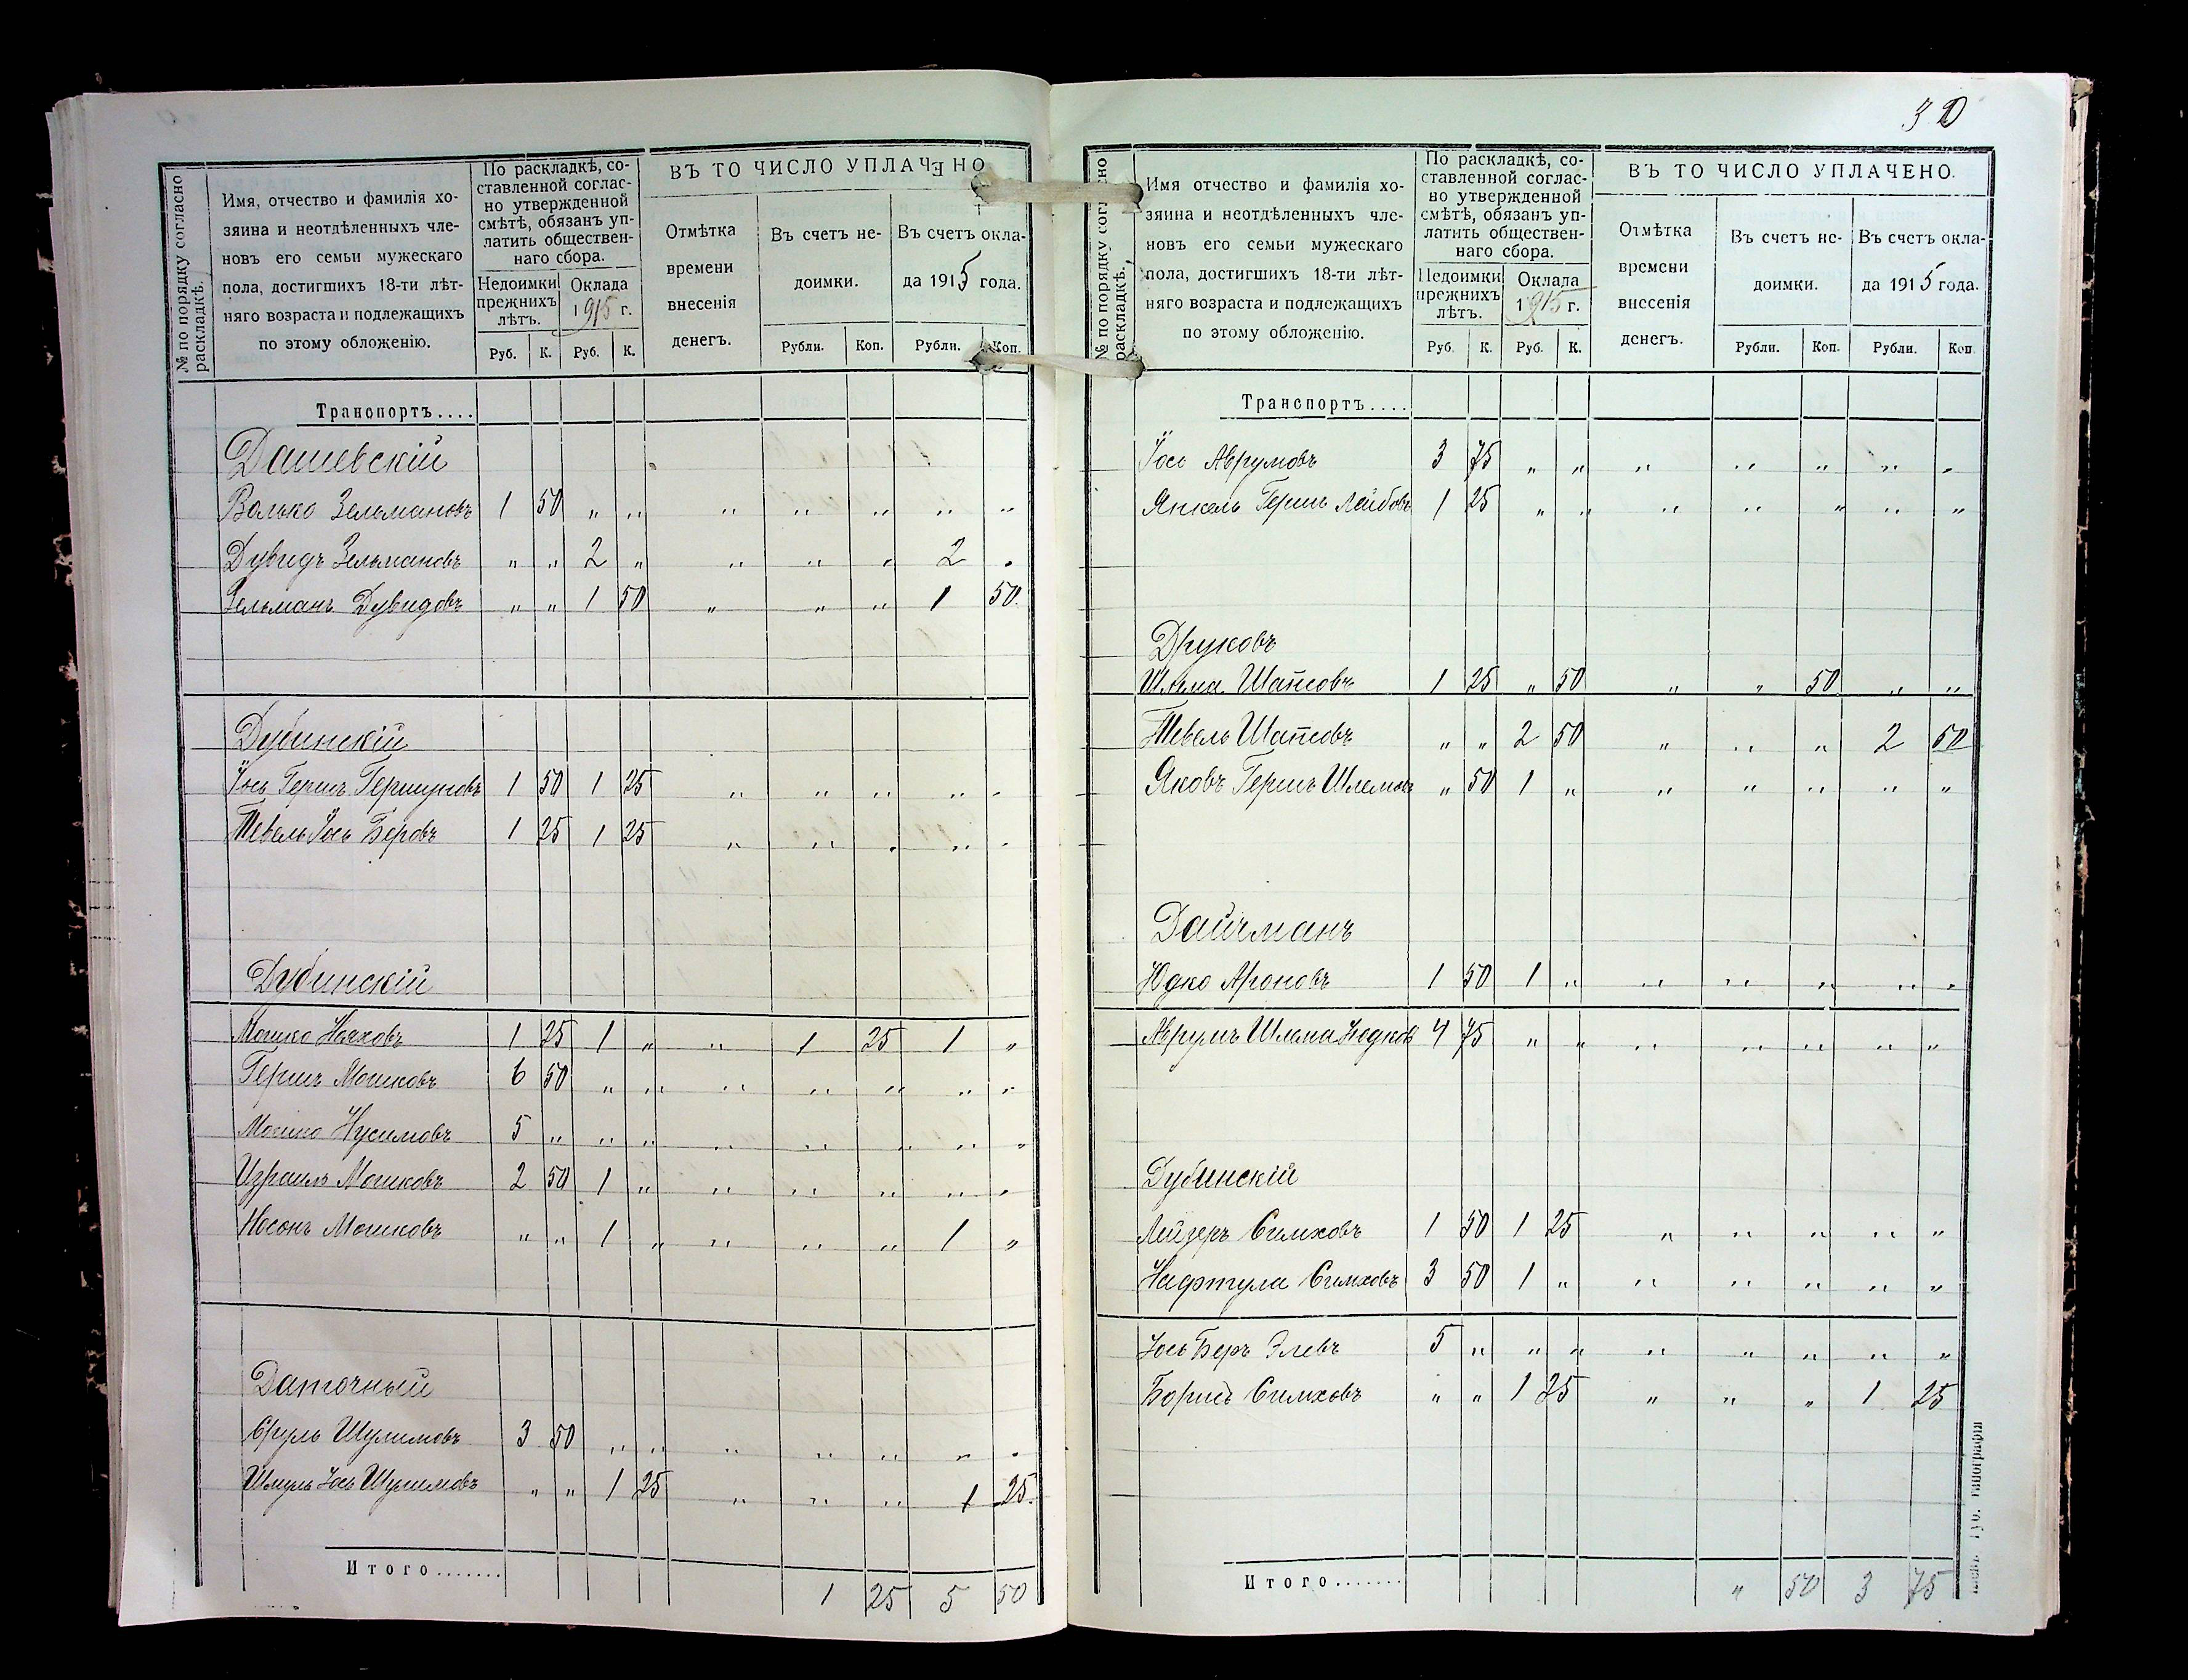 30
№ по порядку согласно раскладкѣ.
Имя, отчество и фамилія хо-
зяина и неотдѣленныхъ чле-
новъ его семьи мужескаго
пола, достигшихъ 18-ти лѣт-
няго возраста и подлежащихъ
по этому обложенію.
По раскладкѣ, со-
ставленной соглас-
но утвержденной
смѣтѣ, обязанъ уп-
латить обществен-
наго сбора.
Недоимки
прежнихъ
лѣтъ.
Оклада
1915 г.
ВЪ ТО ЧИСЛО УПЛАЧЕНО
Отмѣтка
времени
внесенія
денегъ.
Въ счетъ не-
доимки.
Въ счетъ окла-
да 1915 года.
Руб. К. Руб. К. Рубли. Коп. Рубли. Коп.
Транспортъ....
Дашевскій
Волько Зельмановъ 1 50 „ „ „ „ „ „ „
Дувидъ Зельмановъ „ „ 2 „ „ „ „ 2 „
Зельманъ Дувидовъ „ „ 1 50 „ „ „ 1 50.
Дубинскій
Іось Гершъ Гершуновъ 1 50 1 25 „ „ „ „ „
Тевель Іось Беровъ 1 25 1 25 „ „ „ „ „
Дубинскій
Мошко Наховъ 1 25 1 „ „ 1 25 1 „
Гершъ Мошковъ 6 50 „ „ „ „ „ „ „
Мошко Нусимовъ 5 „ „ „ „ „ „ „ „
Израиль Мошковъ 2 50 1 „ „ „ „ „ „
Носонъ Мошковъ „ „ 1 „ „ „ „ 1 „
Даточный
Сруль Шулимовъ 3 50 „ „ „ „ „ „ „
Шмуль Іось Шулимовъ „ „ 1 25 „ „ „ 1 25.
Итого....... 1 25 5 50
№ по порядку согласно раскладкѣ.
Имя отчество и фамилія хо-
зяина и неотдѣленныхъ чле-
новъ его семьи мужескаго
пола, достигшихъ 18-ти лѣт-
няго возраста и подлежащихъ
по этому обложенію.
По раскладкѣ, со-
ставленной соглас-
но утвержденной
смѣтѣ, обязанъ уп-
латить обществен-
наго сбора.
Недоимки
прежнихъ
лѣтъ.
Оклада
1915 г.
ВЪ ТО ЧИСЛО УПЛАЧЕНО.
Отмѣтка
времени
внесенія
денегъ.
Въ счетъ не-
доимки.
Въ счетъ окла-
да 1915 года.
Руб. К. Руб. К. Рубли. Коп. Рубли. Коп.
Транспортъ....
Іось Аврумовъ 3 75 „ „ „ „ „ „ „
Янкель Гершъ Лейбовъ 1 25 „ „ „ „ „ „ „
Друковъ
Шлема Шапсовъ 1 25 „ 50 „ „ 50 „ „
Тевель Шапсовъ „ „ 2 50 „ „ „ 2 50
Яковъ Гершъ Шлемовъ „ 50 1 „ „ „ „ „ „
Дайчманъ
Юдко Ароновъ 1 50 1 „ „ „ „ „ „
Аврумъ Шлема Юдковъ 4 75 „ „ „ „ „ „ „
Дубинскій
Лейзеръ Симховъ 1 50 1 25 „ „ „ „ „
Нафтула Симховъ 3 50 1 „ „ „ „ „ „
Іось Беръ Элевъ 5 „ „ „ „ „ „ „ „
Борисъ Симховъ „ „ 1 25 „ „ „ 1 25
Итого....... „ 50 3 75
Губ. типографія